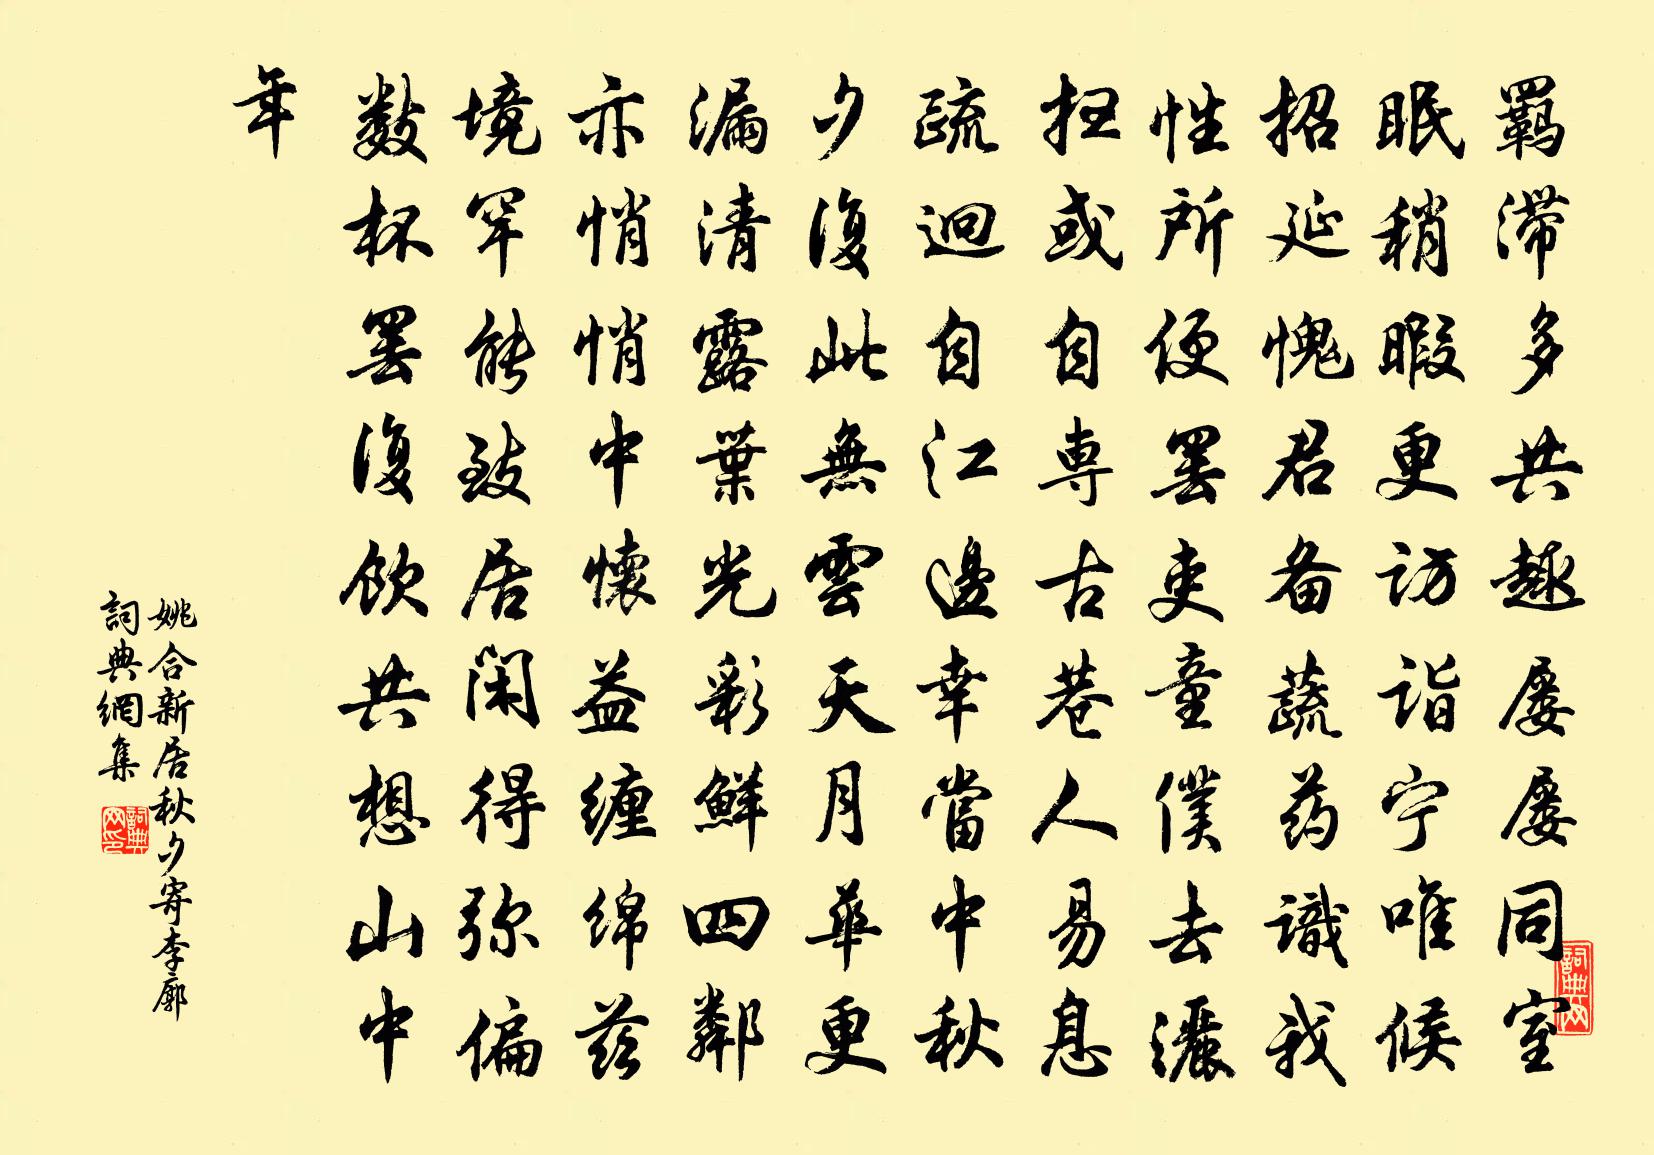 羈滞多共趣屡屡同室
眠稍暇更访诣宁唯候
招延愧君备蔬药識我
性所便罢吏童僕去灑
扫或自専古巷人易息
疏迥自江邊幸當中秋
夕復此無雲天月華更
漏清露葉光彩鮮四鄰
亦悄悄中懷益缠绵兹
境罕能致居闲得弥偏
数杯罢復饮共想山中
年
姚合新居秋夕寄李廓
詞典網集
詞典网印
詞典网